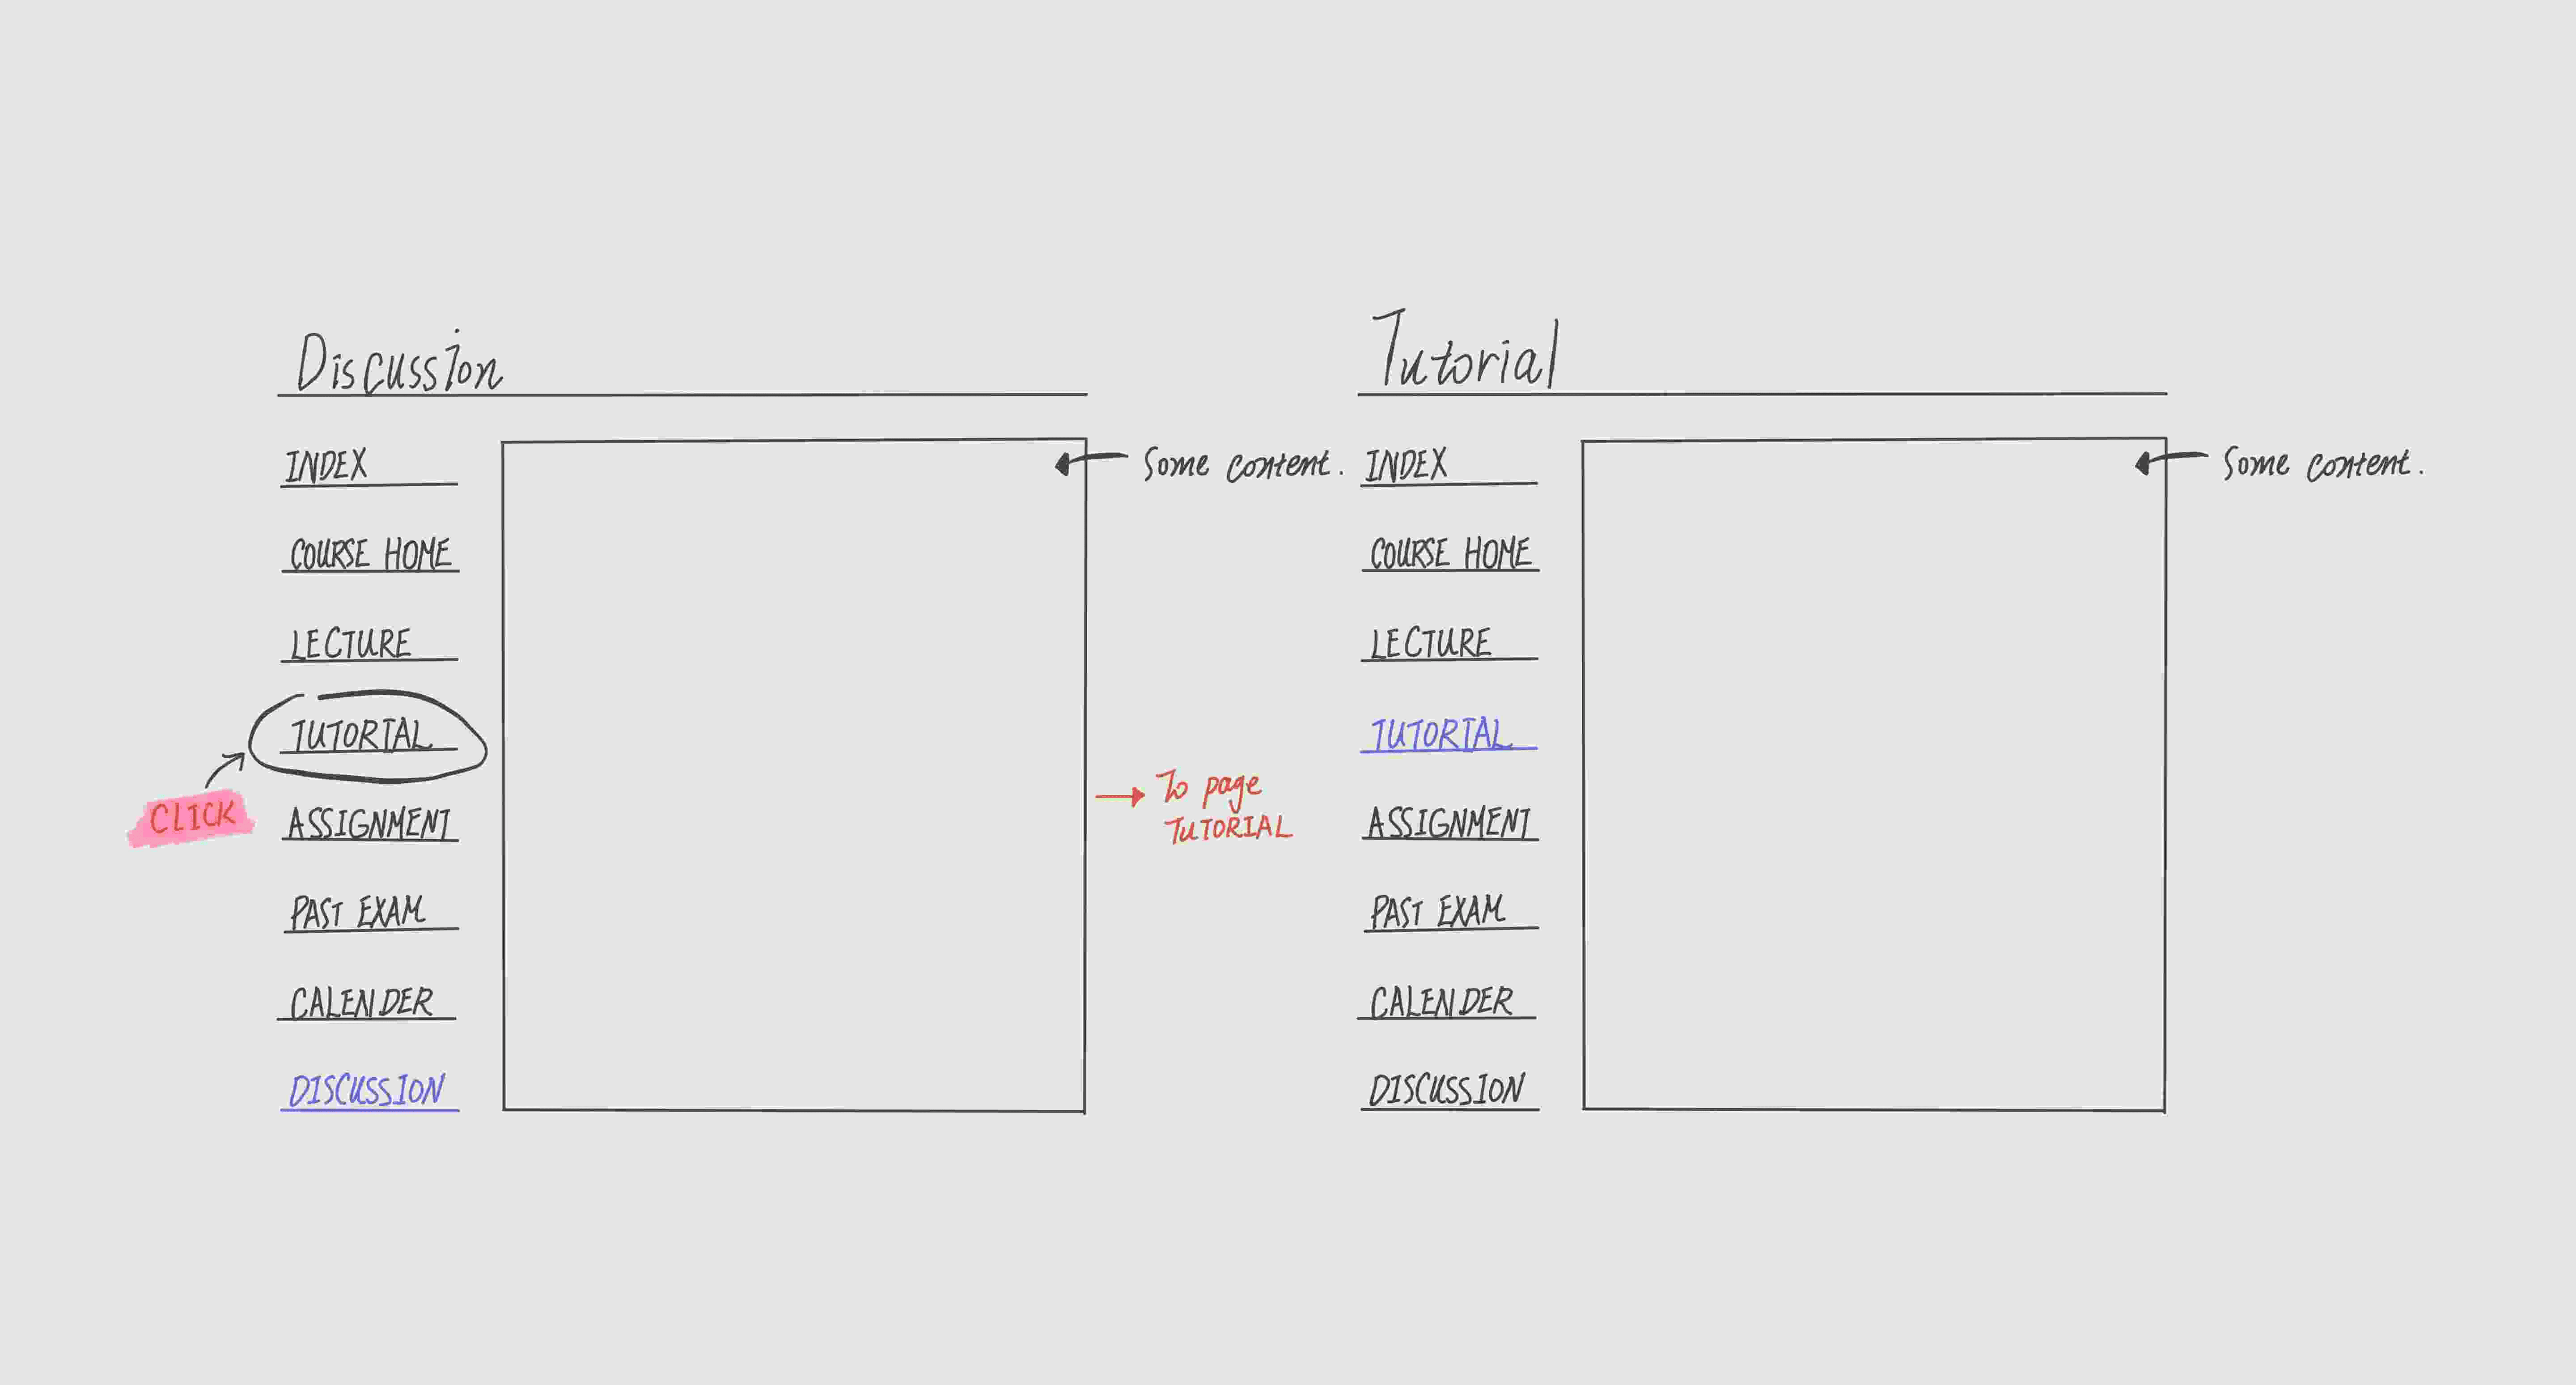 Discussion
INDEX
COURSE HOME
LECTURE
TUTORIAL
CLICK
ASSIGNMENT
PAST EXAM
CALENDER
DISCUSSION
Some content.
To page
TUTORIAL
Tutorial
INDEX
COURSE HOME
LECTURE
TUTORIAL
ASSIGNMENT
PAST EXAM
CALENDER
DISCUSSION
Some content.